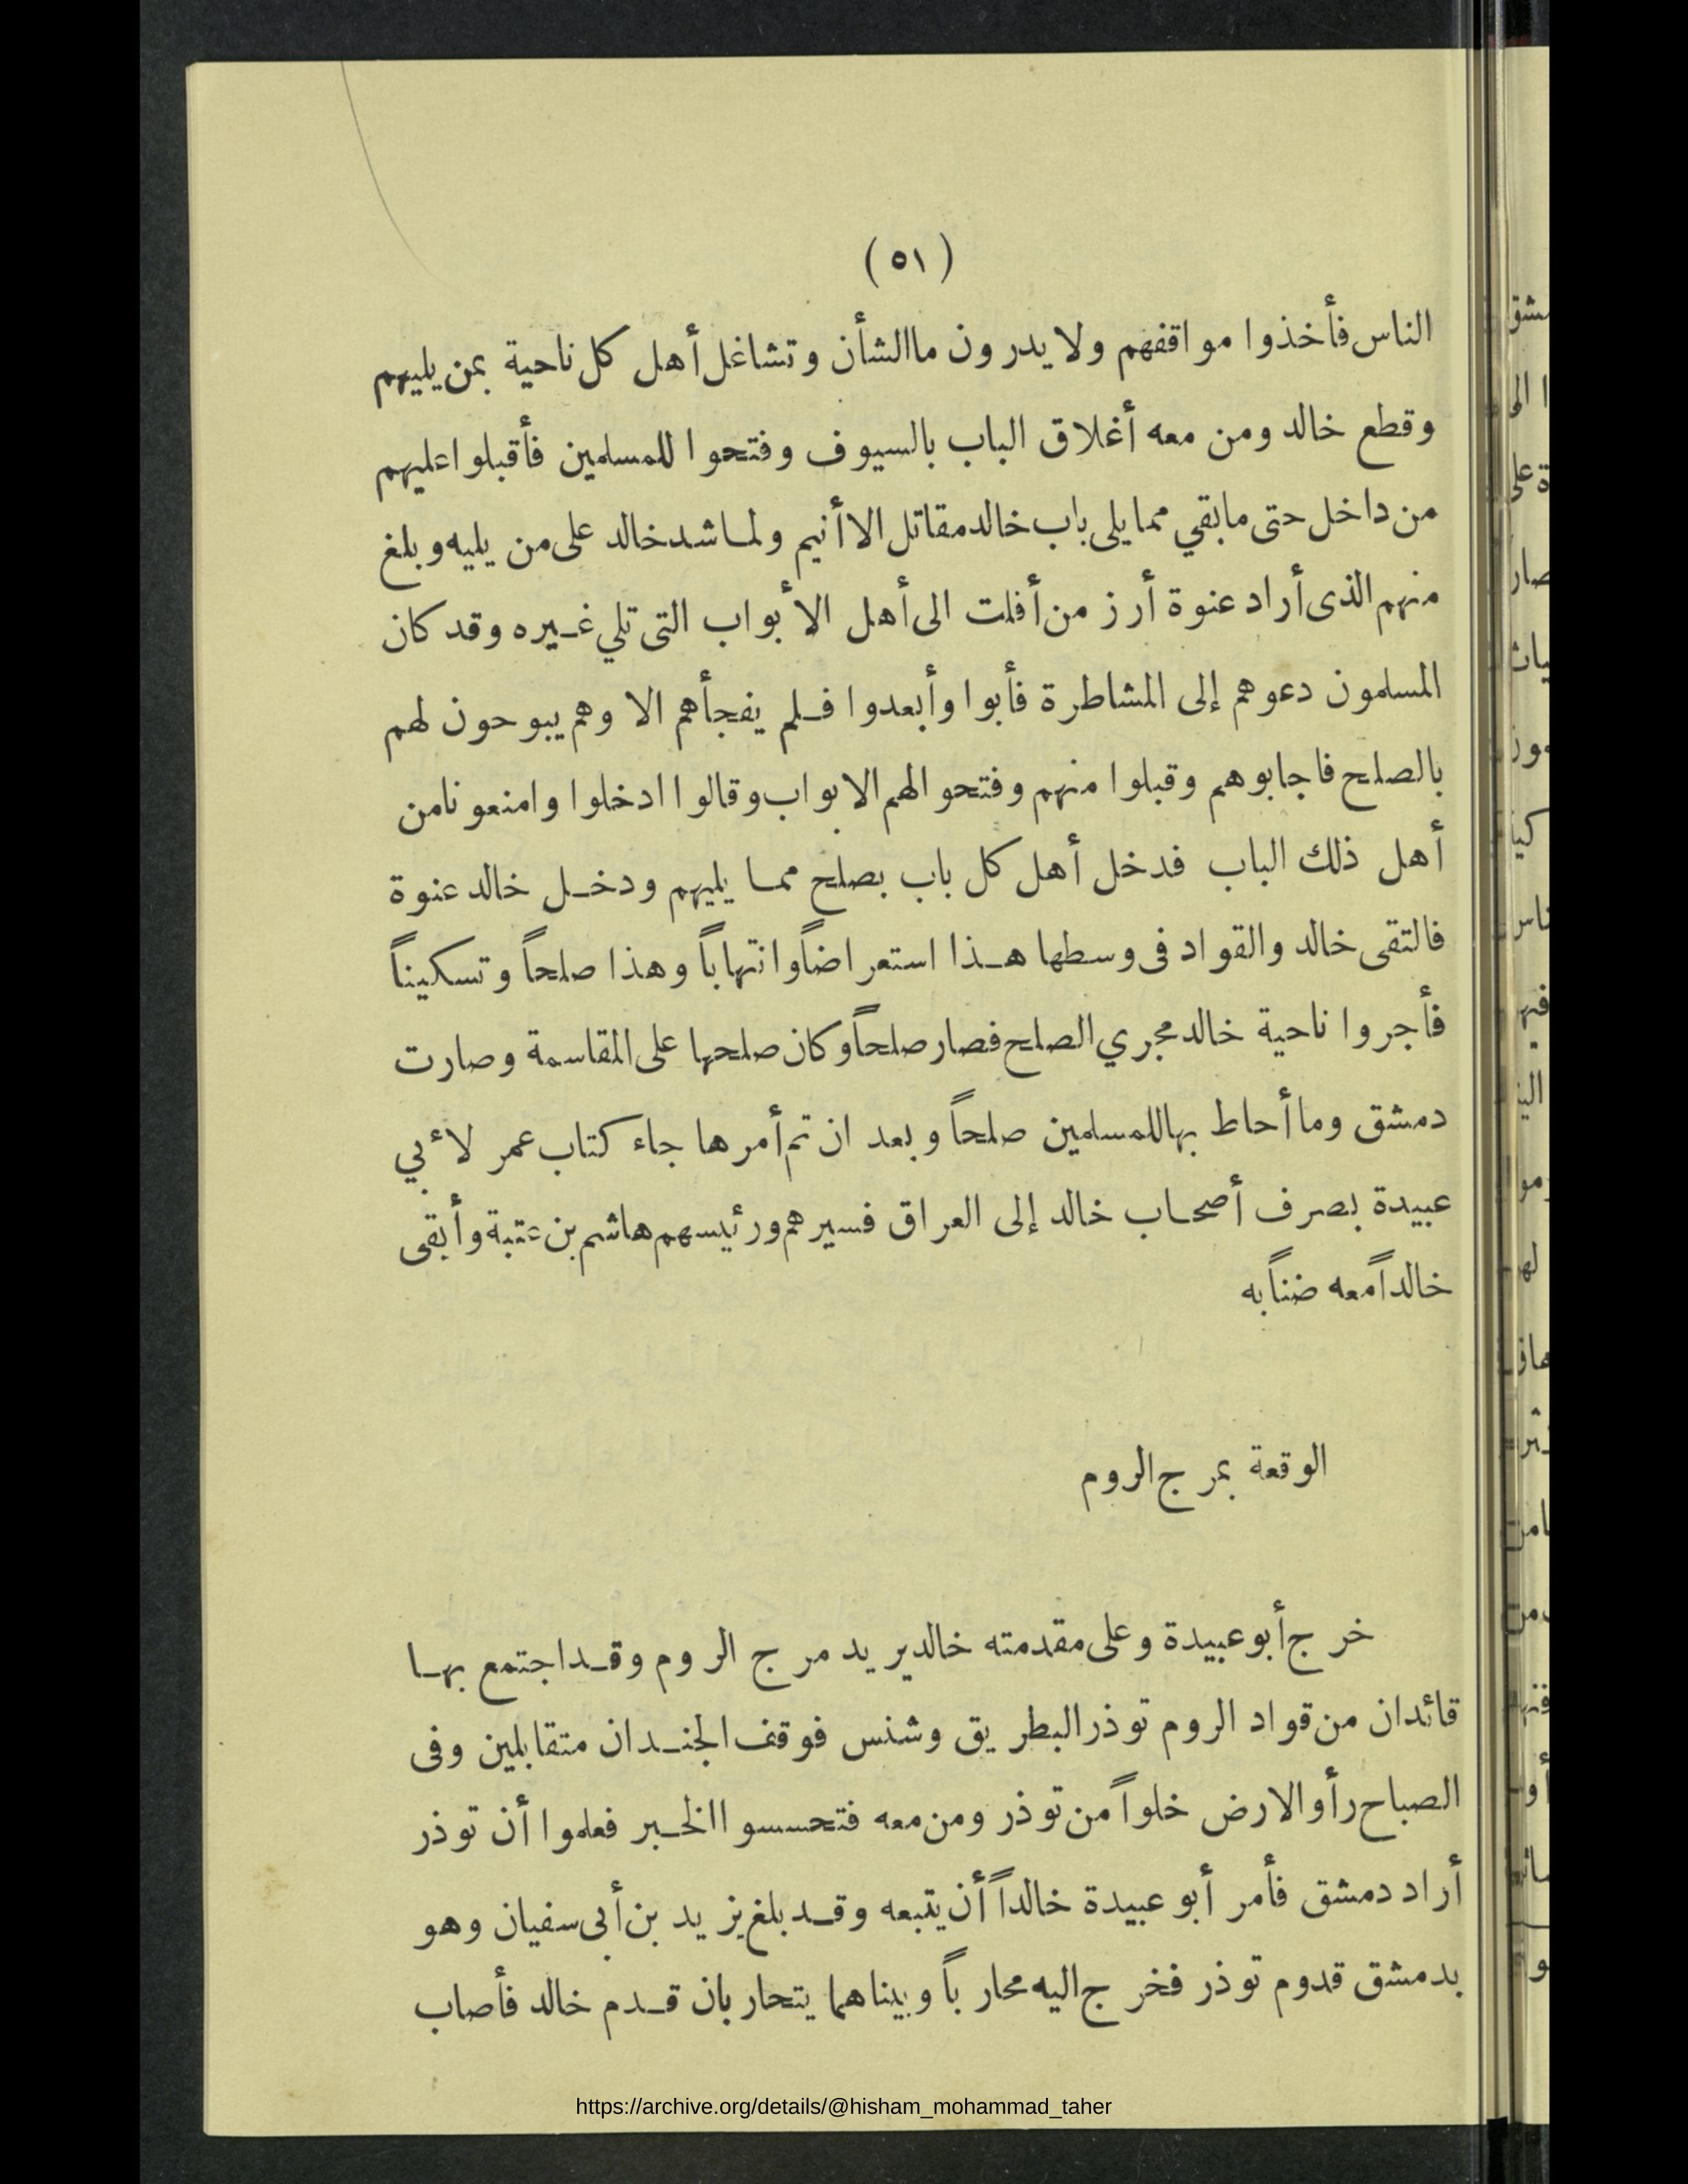 (٥١)
الناس فأخذوا مواقفهم ولا يدرون ما الشأن وتشاغل أهل كل ناحية بمن يليهم
وقطع خالد ومن معه أغلاق الباب بالسيوف وفتحوا للمسلمين فأقبلوا عليهم
من داخل حتى ما بقي مما يلى باب خالد مقاتل الا أنيم ولما شد خالد على من يليه وبلغ
منهم الذى أراد عنوة أرز من أفلت الى أهل الأبواب التى تلي غيره وقد كان
المسلمون دعوهم إلى المشاطرة فأبوا وأبعدوا فلم يفجأهم الا وهم يبوحون لهم
بالصلح فاجابوهم وقبلوا منهم وفتحوا لهم الابواب وقالوا ادخلوا وامنعونا من
أهل ذلك الباب فدخل أهل كل باب بصلح مما يليهم ودخل خالد عنوة
فالتقى خالد والقواد فى وسطها هذا استعراضاً وانتهاباً وهذا صلحاً وتسكيناً
فأجروا ناحية خالد مجري الصلح فصار صلحاً وكان صلحها على المقاسمة وصارت
دمشق وما أحاط بها للمسلمين صلحاً وبعد ان تم أمرها جاء كتاب عمر لأبي
عبيدة بصرف أصحاب خالد إلى العراق فسيرهم ورئيسهم هاشم بن عتبة وأبقى
خالداً معه ضناً به
الوقعة بمرج الروم
خرج أبو عبيدة وعلى مقدمته خالد يريد مرج الروم وقد اجتمع بها
قائدان من قواد الروم توذر البطريق وشنس فوقف الجندان متقابلين وفى
الصباح رأوا الارض خلواً من توذر ومن معه فتحسسوا الخبر فعلموا أن توذر
أراد دمشق فأمر أبو عبيدة خالداً أن يتبعه وقد بلغ يزيد بن أبى سفيان وهو
بدمشق قدوم توذر فخرج اليه محارباً وبيناهما يتحاربان قدم خالد فأصاب
https://archive.org/details/@hisham_mohammad_taher